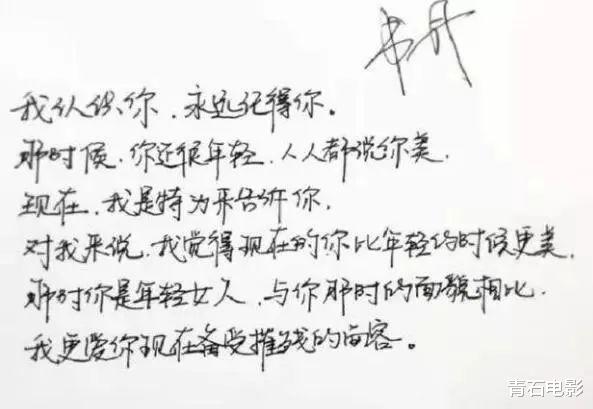 韦丹
我认识你，永远记得你。
那时候，你还很年轻，人人都说你美，
现在，我是特为来告诉你，
对我来说，我觉得现在的你比年轻的时候更美，
那时你是年轻女人，与你那时的面貌相比，
我更爱你现在备受摧残的面容。
青石电影